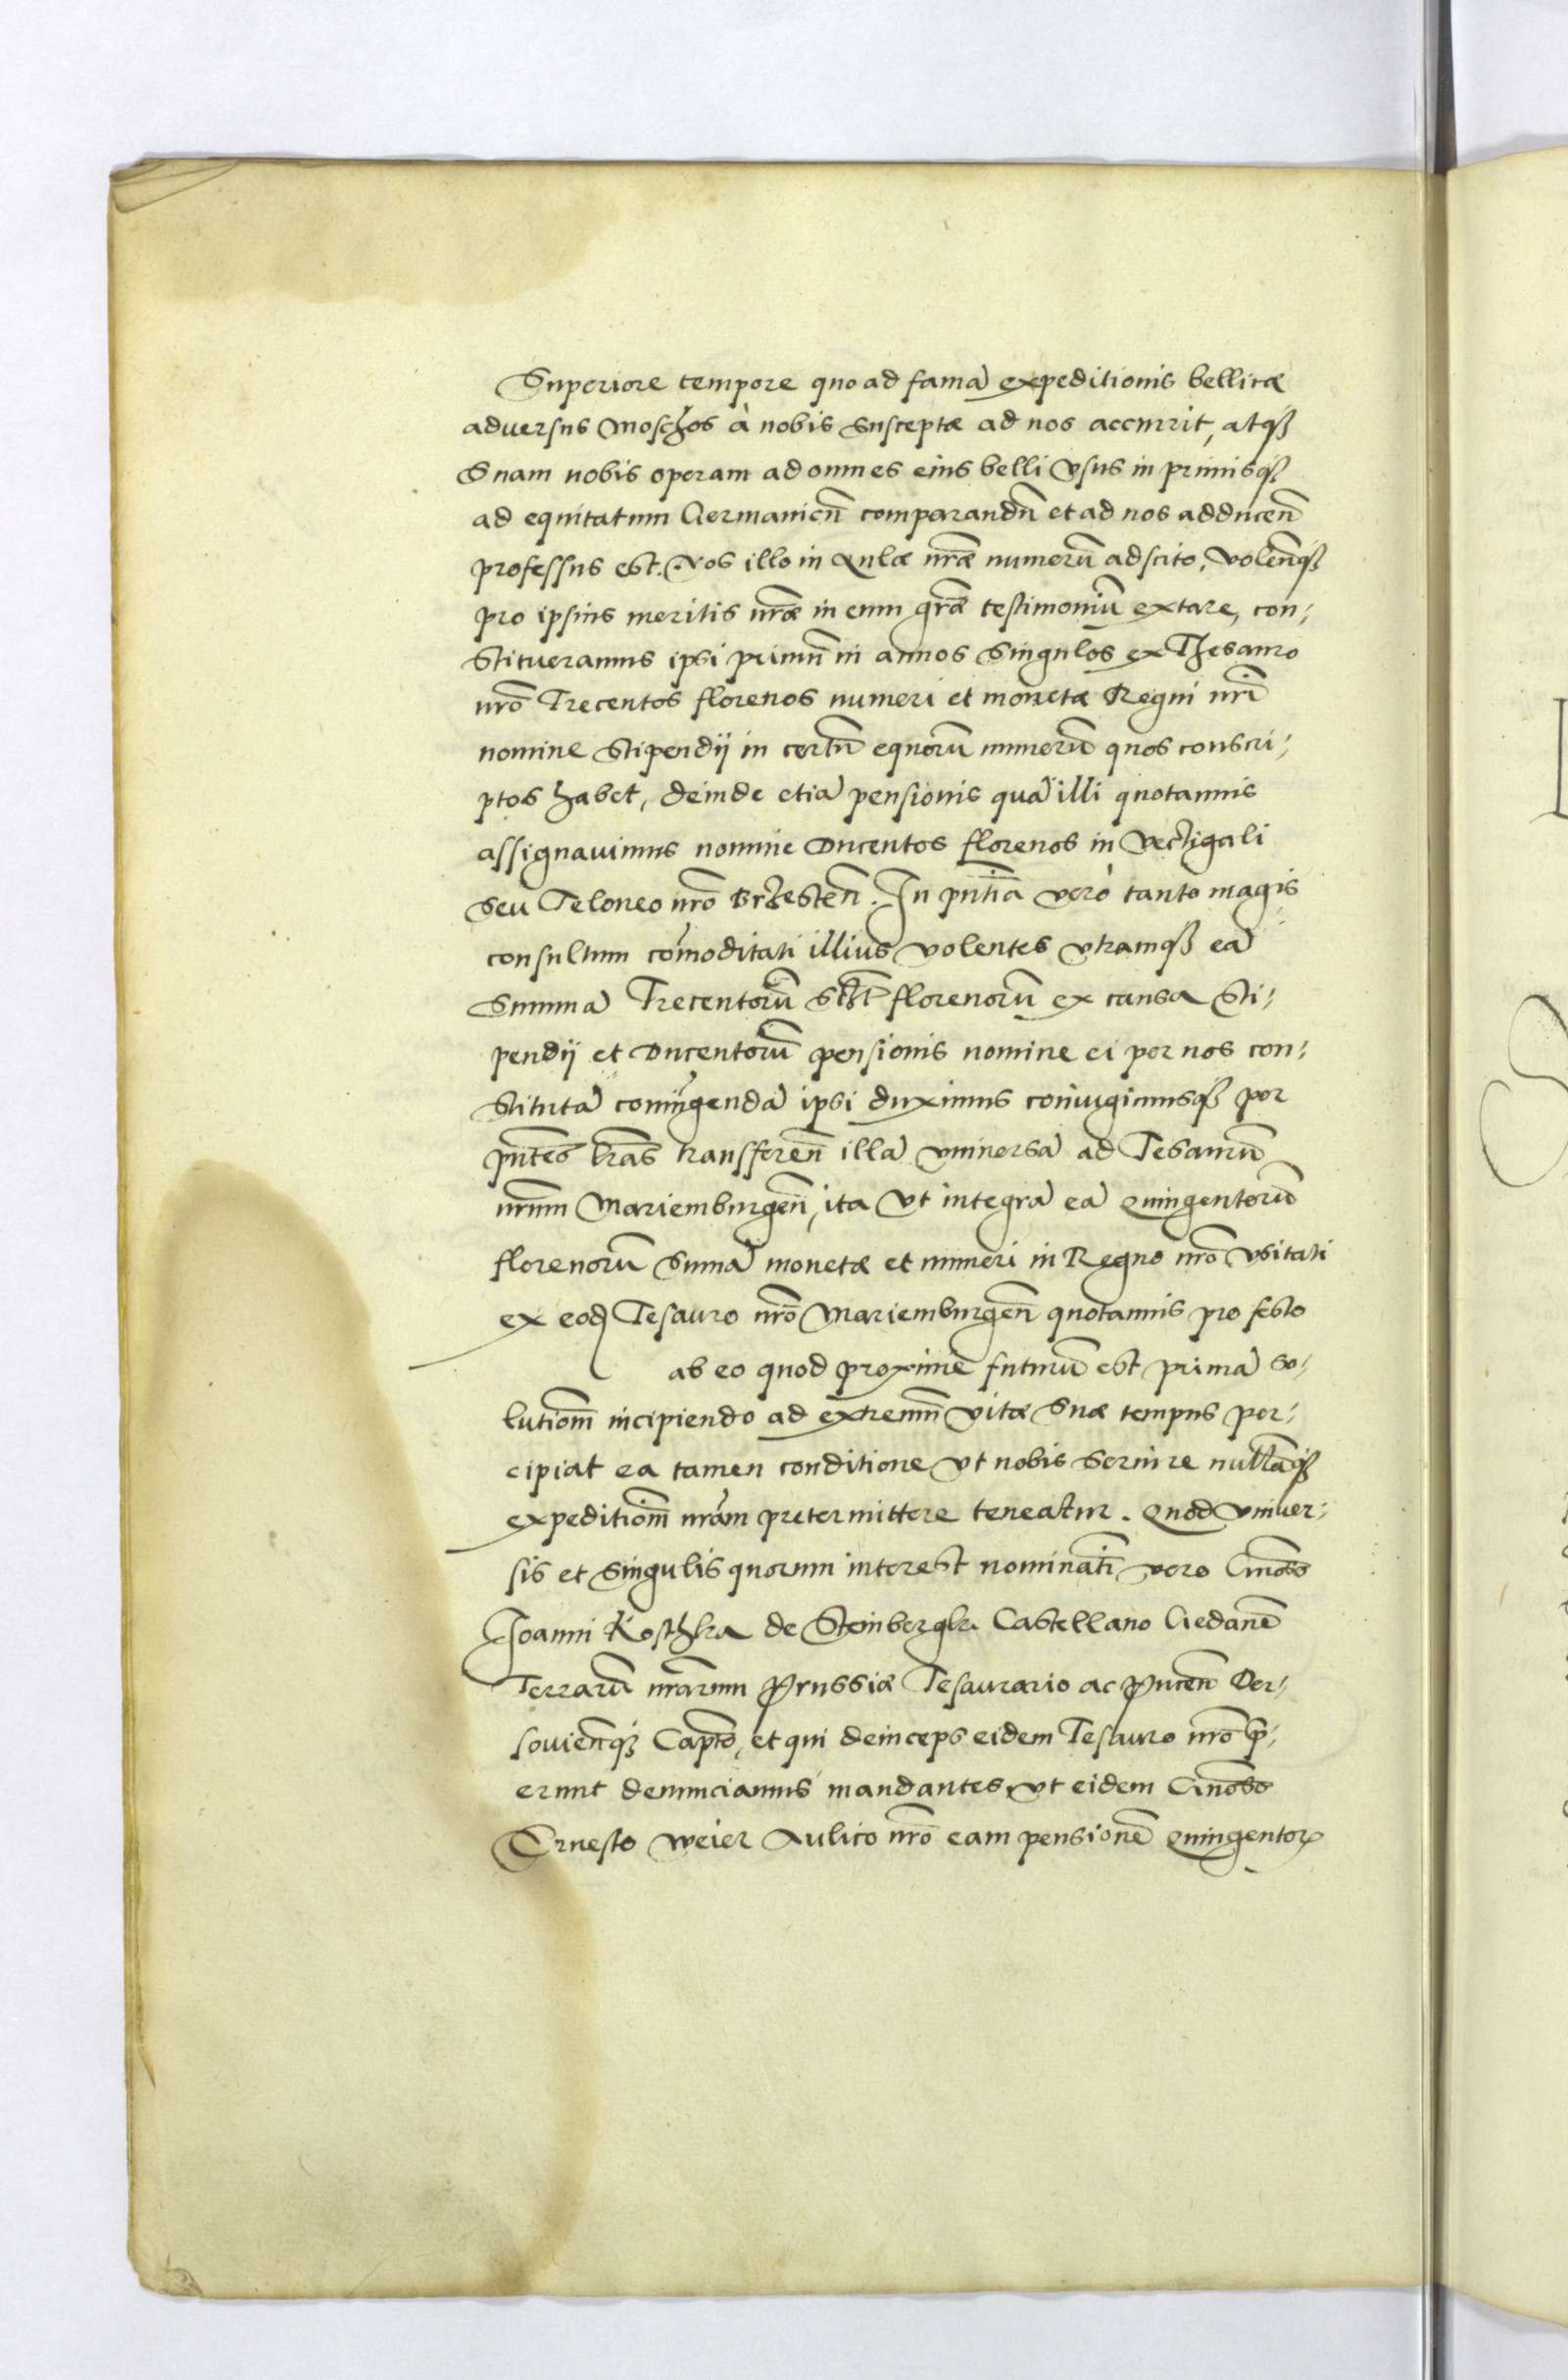 Superiore tempore quo ad famã expeditionis bellicæ
adversus Moschos à nobis susceptæ ad nos accurrit, atqȝ
Suam nobis operam ad omnes eius belli vsus in primisqȝ
ad equitatum Germanicũ comparandũ et ad nos adducen̄
professus est. Nos illo in Aulæ nr̃æ numerũ adscito, volen̄qȝ
pro ipsius meritis nr̃æ in eum gr̃æ testimoniũ extare, con-
stitueramus ipsi primũ in annos singulos ex Thesauro
nr̃o Trecentos florenos numeri et monetæ Regni nr̃i
nomine stipendij in certũ equorũ numerũ quos conscri-
ptos habet, deinde etiã pensionis quã illi quotannis
assignavimus nomine Ducentos florenos in vectigali
seu Teloneo nr̃o Brzesten̄. In pñtia verò tanto magis
consultum com̃oditati illius volentes vtramqȝ eã
Summã Trecentorũ florenorũ ex causa sti-
pendij et Ducentorũ pensionis nomine ei per nos con-
stitutã coniungendã ipsi duximus coniugimusqȝ per
pñtes lr̃as transferen̄ illã vniuersã ad Tesaurũ
nr̃um Mariemburgen̄, ita vt integrã eã Quingentorũ
florenorũ Sum̃ã monetæ et numeri in Regno nr̃o vsitati
ex eod Tesauro nr̃o Mariemburgen̄ quotannis pro festo
ab eo quod proximè futurũ est primã so-
lutionẽ incipiendo ad extremũ vitæ suæ tempus per-
cipiat ea tamen conditione vt nobis seruire nullãqȝ
expeditionẽ nr̃am pretermittere teneatur. Quod vniver-
sis et singulis quorum interest nominatĩ vero Gnoso
Joanni Kosthka de Steinbergk Castellano Gedanen̄
Terrarũ nr̃arum Prussiæ Tesaurario ac Pucen̄ Der-
sovien̄qȝ Capt̃o, et qui deinceps eidem Tesauro nr̃o p̃-
erunt denunciamus mandantes, vt eidem Gnoso
Ernesto Weier Aulico nr̃o eam pensionẽ Quingentorꝝ